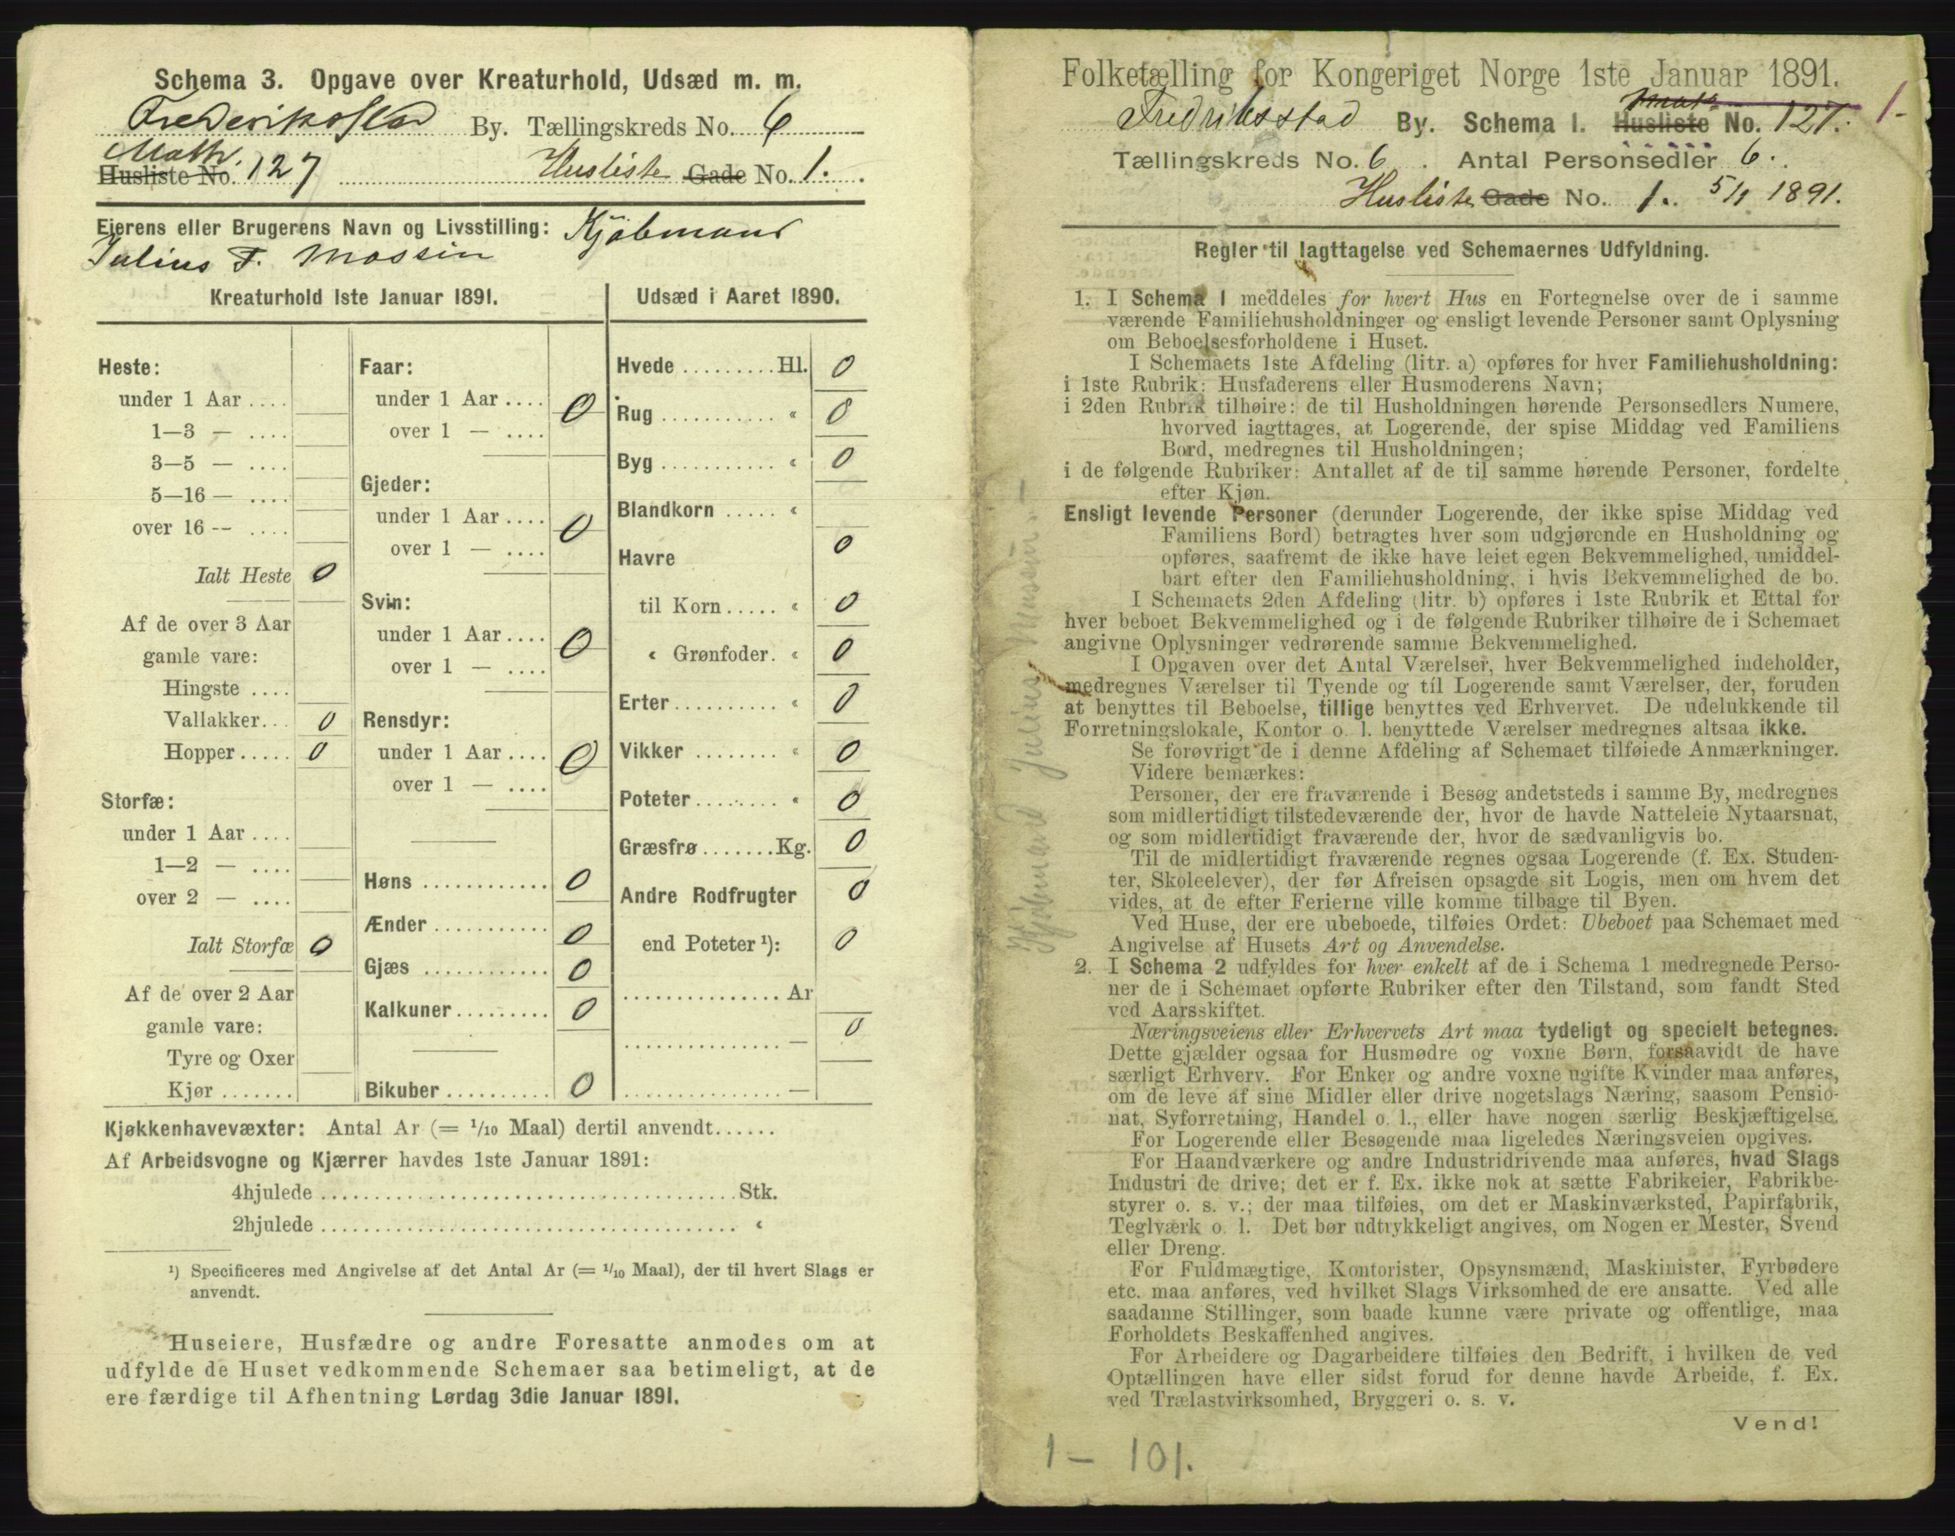 Schema 3. Opgave over Kreaturhold, Udsæd m. m.
Frederikstad By. Tællingskreds No. 6
Math.
Husliste No. 127 Husliste Gade No. 1.
Eierens eller Brugerens Navn og Livsstilling: Kjøbmand
Julius F. Massin
Kreaturhold 1ste Januar 1891.
Heste:
under 1 Aar ....
1—3 — ....
3—5 — ....
5—16 — ....
over 16 -- ....
Ialt Heste 0
Af de over 3 Aar
gamle vare:
Hingste ....
Vallakker... 0
Hopper..... 0
Storfæ:
under 1 Aar ....
1—2 — ....
over 2 — ....
Ialt Storfæ 0
Af de over 2 Aar
gamle vare:
Tyre og Oxer
Kjør .......
Faar:
under 1 Aar .... 0
over 1 — ....
Gjeder:
under 1 Aar .... 0
over 1 — ....
Svin:
under 1 Aar .... 0
over 1 — ....
Rensdyr:
under 1 Aar .... 0
over 1 — ....
Høns ............ 0
Ænder ........... 0
Gjæs ............ 0
Kalkuner ......... 0
Bikuber .......... 0
Udsæd i Aaret 1890.
Hvede ......... Hl. 0
Rug ........... « 0
Byg ........... « 0
Blandkorn ..... «
Havre 0
til Korn ..... « 0
« Grønfoder. « 0
Erter .......... « 0
Vikker ........ « 0
Poteter ........ « 0
Græsfrø ....... Kg. 0
Andre Rodfrugter 0
end Poteter ¹): 0
............... Ar
............... — 0
............... —
Kjøkkenhavevæxter: Antal Ar (= 1/10 Maal) dertil anvendt......
Af Arbeidsvogne og Kjærrer havdes 1ste Januar 1891:
4hjulede ...................................... Stk.
2hjulede ...................................... «
¹) Specificeres med Angivelse af det Antal Ar (= 1/10 Maal), der til hvert Slags er
anvendt.
Huseiere, Husfædre og andre Foresatte anmodes om at
udfylde de Huset vedkommende Schemaer saa betimeligt, at de
ere færdige til Afhentning Lørdag 3die Januar 1891.
Folketælling for Kongeriget Norge 1ste Januar 1891.
Fredriksstad By. Schema 1. Husliste No. 127. 1-
Tællingskreds No. 6. Antal Personsedler 6.
Husliste Gade No. 1. 5/1 1891.
Regler til Iagttagelse ved Schemaernes Udfyldning.
1. I Schema 1 meddeles for hvert Hus en Fortegnelse over de i samme
værende Familiehusholdninger og ensligt levende Personer samt Oplysning
om Beboelsesforholdene i Huset.
I Schemaets 1ste Afdeling (litr. a) opføres for hver Familiehusholdning:
i 1ste Rubrik: Husfaderens eller Husmoderens Navn;
i 2den Rubrik tilhøire: de til Husholdningen hørende Personsedlers Numere,
hvorved iagttages, at Logerende, der spise Middag ved Familiens
Bord, medregnes til Husholdningen;
i de følgende Rubriker: Antallet af de til samme hørende Personer, fordelte
efter Kjøn.
Ensligt levende Personer (derunder Logerende, der ikke spise Middag ved
Familiens Bord) betragtes hver som udgjørende en Husholdning og
opføres, saafremt de ikke have leiet egen Bekvemmelighed, umiddel-
bart efter den Familiehusholdning, i hvis Bekvemmelighed de bo.
I Schemaets 2den Afdeling (litr. b) opføres i 1ste Rubrik et Ettal for
hver beboet Bekvemmelighed og i de følgende Rubriker tilhøire de i Schemaet
angivne Oplysninger vedrørende samme Bekvemmelighed.
I Opgaven over det Antal Værelser, hver Bekvemmelighed indeholder,
medregnes Værelser til Tyende og til Logerende samt Værelser, der, foruden
at benyttes til Beboelse, tillige benyttes ved Erhvervet. De udelukkende til
Forretningslokale, Kontor o. l. benyttede Værelser medregnes altsaa ikke.
Se forøvrigt de i denne Afdeling af Schemaet tilføiede Anmærkninger.
Videre bemærkes:
Personer, der ere fraværende i Besøg andetsteds i samme By, medregnes
som midlertidigt tilstedeværende der, hvor de havde Natteleie Nytaarsnat,
og som midlertidigt fraværende der, hvor de sædvanligvis bo.
Til de midlertidigt fraværende regnes ogsaa Logerende (f. Ex. Studen-
ter, Skoleelever), der før Afreisen opsagde sit Logis, men om hvem det
vides, at de efter Ferierne ville komme tilbage til Byen.
Ved Huse, der ere ubeboede, tilføies Ordet: Ubeboet paa Schemaet med
Angivelse af Husets Art og Anvendelse.
2. I Schema 2 udfyldes for hver enkelt af de i Schema 1 medregnede Perso-
ner de i Schemaet opførte Rubriker efter den Tilstand, som fandt Sted
ved Aarsskiftet.
Næringsveiens eller Erhvervets Art maa tydeligt og specielt betegnes.
Dette gjælder ogsaa for Husmødre og voxne Børn, forsaavidt de have
særligt Erhverv. For Enker og andre voxne ugifte Kvinder maa anføres,
om de leve af sine Midler eller drive nogetslags Næring, saasom Pensio-
nat, Syforretning, Handel o. l., eller have nogen særlig Beskjæftigelse.
For Logerende eller Besøgende maa ligeledes Næringsveien opgives.
For Haandværkere og andre Industridrivende maa anføres, hvad Slags
Industri de drive; det er f. Ex. ikke nok at sætte Fabrikeier, Fabrikbe-
styrer o. s. v.; der maa tilføies, om det er Maskinværksted, Papirfabrik,
Teglværk o. l. Det bør udtrykkeligt angives, om Nogen er Mester, Svend
eller Dreng.
For Fuldmægtige, Kontorister, Opsynsmænd, Maskinister, Fyrbødere
etc. maa anføres, ved hvilket Slags Virksomhed de ere ansatte. Ved alle
saadanne Stillinger, som baade kunne være private og offentlige, maa
Forholdets Beskaffenhed angives.
For Arbeidere og Dagarbeidere tilføies den Bedrift, i hvilken de ved
Optællingen have eller sidst forud for denne havde Arbeide, f. Ex.
ved Trælastvirksomhed, Bryggeri o. s. v.
Vend!
Kjøbmand Julius Massin.—
1 — 101.